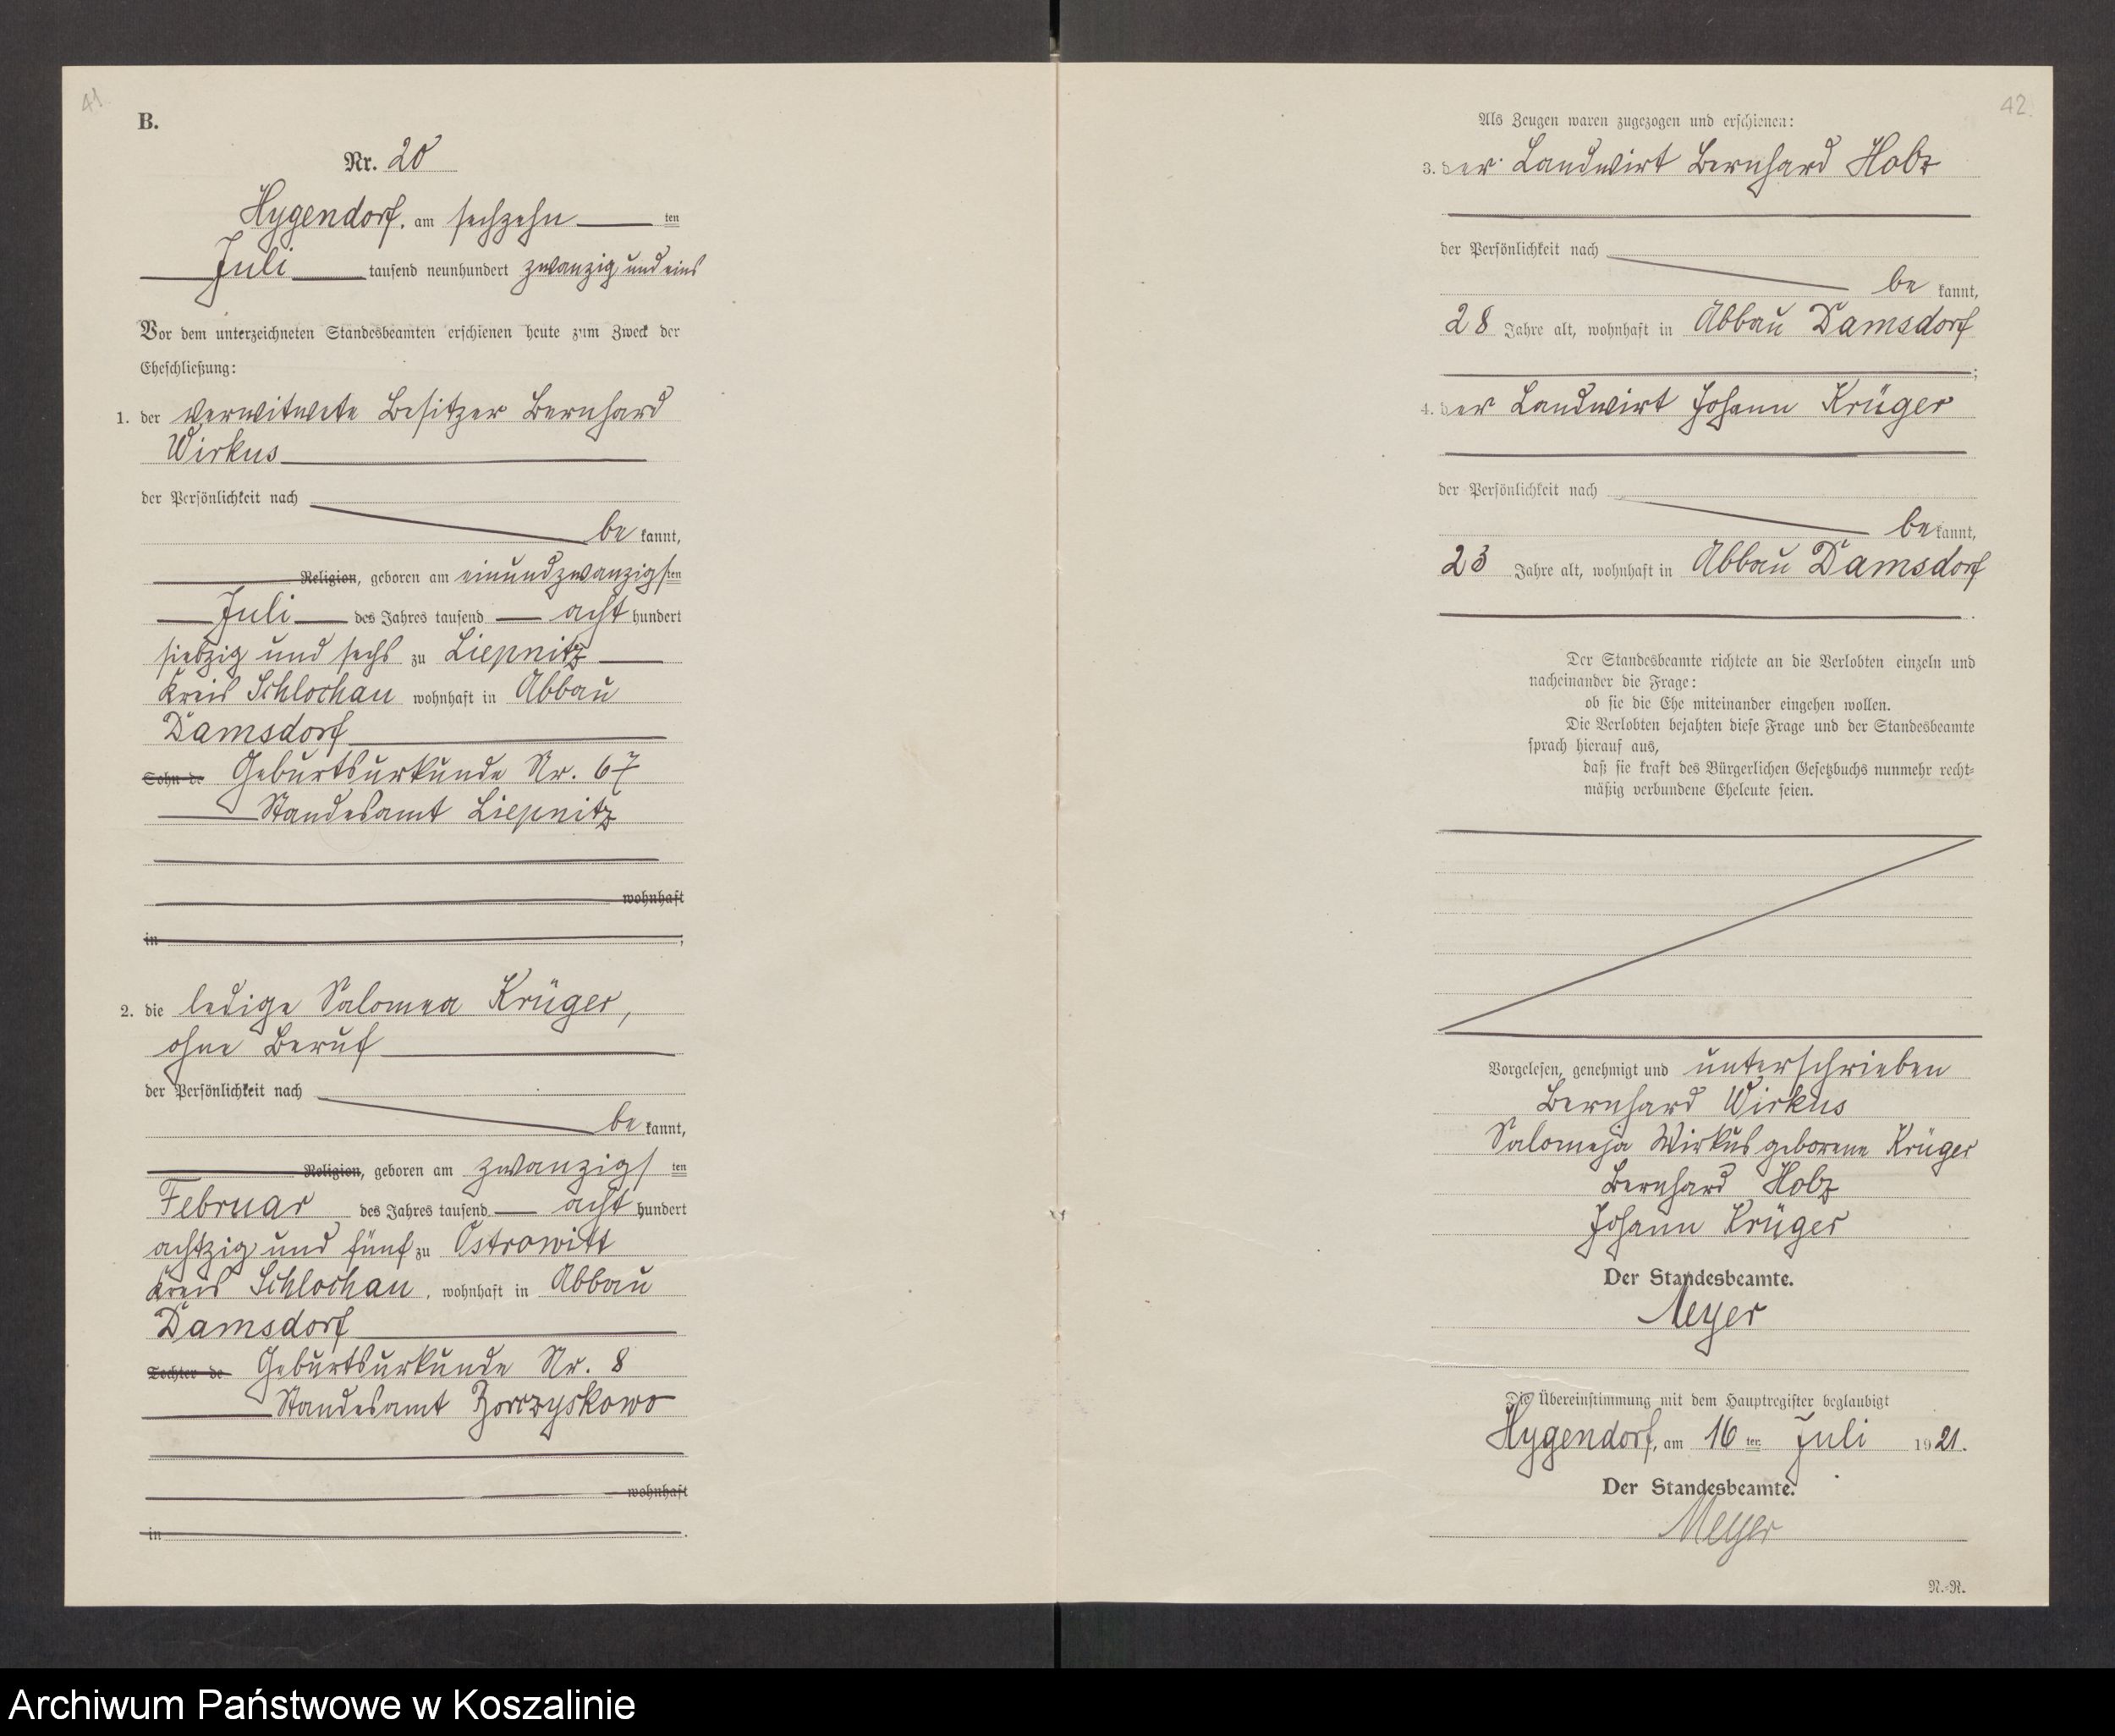 41
B.
Nr. 20
Hygendorf, am sechzehn ten
Juli tausend neunhundert zwanzig und eins
Vor dem unterzeichneten Standesbeamten erschienen heute zum Zweck der
Eheschließung:
1. der verwitwete Besitzer Bernhard
Wirkus
der Persönlichkeit nach
be kannt,
Religion, geboren am einundzwanzigsten
Juli des Jahres tausend acht hundert
siebzig und sechs zu Liepnitz
Kreis Schlochau wohnhaft in Abbau
Damsdorf
Sohn de Geburtsurkunde Nr. 67
Standesamt Liepnitz
wohnhaft
in ;
2. die ledige Salomea Krüger,
ohne Beruf
der Persönlichkeit nach
be kannt,
Religion, geboren am zwanzigs ten
Februar des Jahres tausend acht hundert
achtzig und fünf zu Ostrowitt
Kreis Schlochau, wohnhaft in Abbau
Damsdorf
Tochter de Geburtsurkunde Nr. 8
Standesamt Borzyskowo
wohnhaft
in .
42
Als Zeugen waren zugezogen und erschienen:
3. der Landwirt Bernhard Holz
der Persönlichkeit nach
be kannt,
28 Jahre alt, wohnhaft in Abbau Damsdorf
;
4. der Landwirt Johann Krüger
der Persönlichkeit nach
be kannt,
23 Jahre alt, wohnhaft in Abbau Damsdorf
.
Der Standesbeamte richtete an die Verlobten einzeln und
nacheinander die Frage:
ob sie die Ehe miteinander eingehen wollen.
Die Verlobten bejahten diese Frage und der Standesbeamte
sprach hierauf aus,
daß sie kraft des Bürgerlichen Gesetzbuchs nunmehr recht-
mäßig verbundene Eheleute seien.
Vorgelesen, genehmigt und unterschrieben
Bernhard Wirkus
Salomeja Wirkus geborene Krüger
Bernhard Holz
Johann Krüger
Der Standesbeamte.
Meyer
Die Übereinstimmung mit dem Hauptregister beglaubigt
Hygendorf, am 16 ten Juli 1921.
Der Standesbeamte.
Meyer
N.-R.
Archiwum Państwowe w Koszalinie